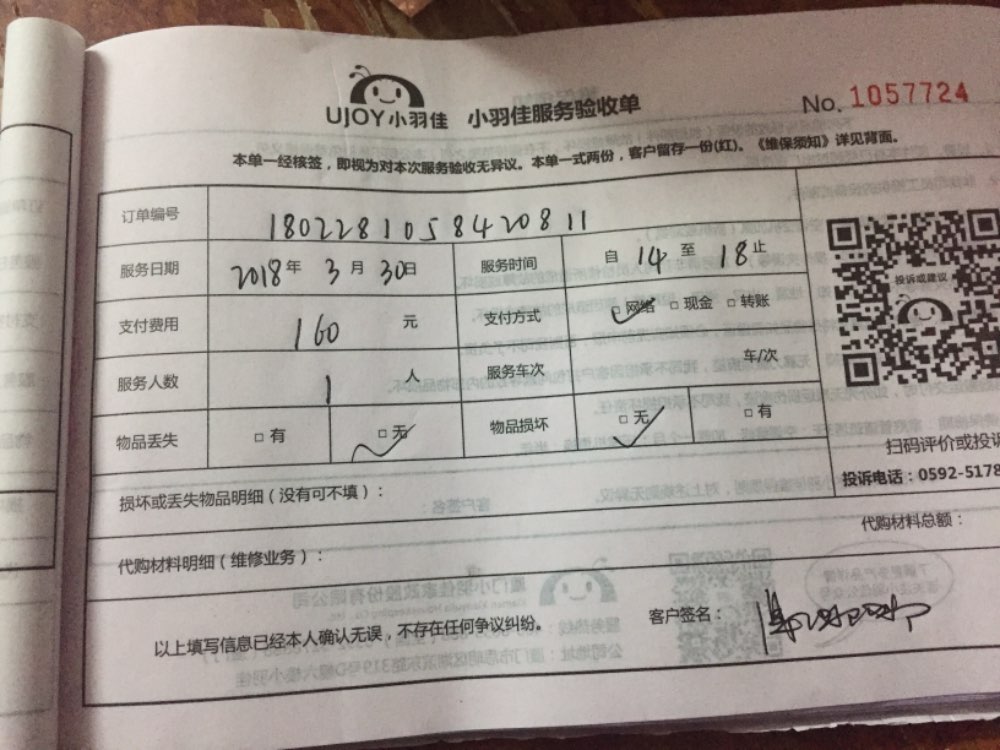 UJOY小羽佳 小羽佳服务验收单 No. 1057724
本单一经核签，即视为对本次服务验收无异议。本单一式两份，客户留存一份(红)。《维保须知》详见背面。
订单编号 1802281058420811
服务日期 2018年 3月 30日 服务时间 自 14 至 18 止
支付费用 160 元 支付方式 □网络 □现金 □转账
服务人数 1 人 服务车次 车/次
物品丢失 □有 □无 物品损坏 □无 □有
投诉或建议
扫码评价或投诉
投诉电话：0592-5178
损坏或丢失物品明细（没有可不填）：
代购材料明细（维修业务）： 代购材料总额：
以上填写信息已经本人确认无误，不存在任何争议纠纷。 客户签名：